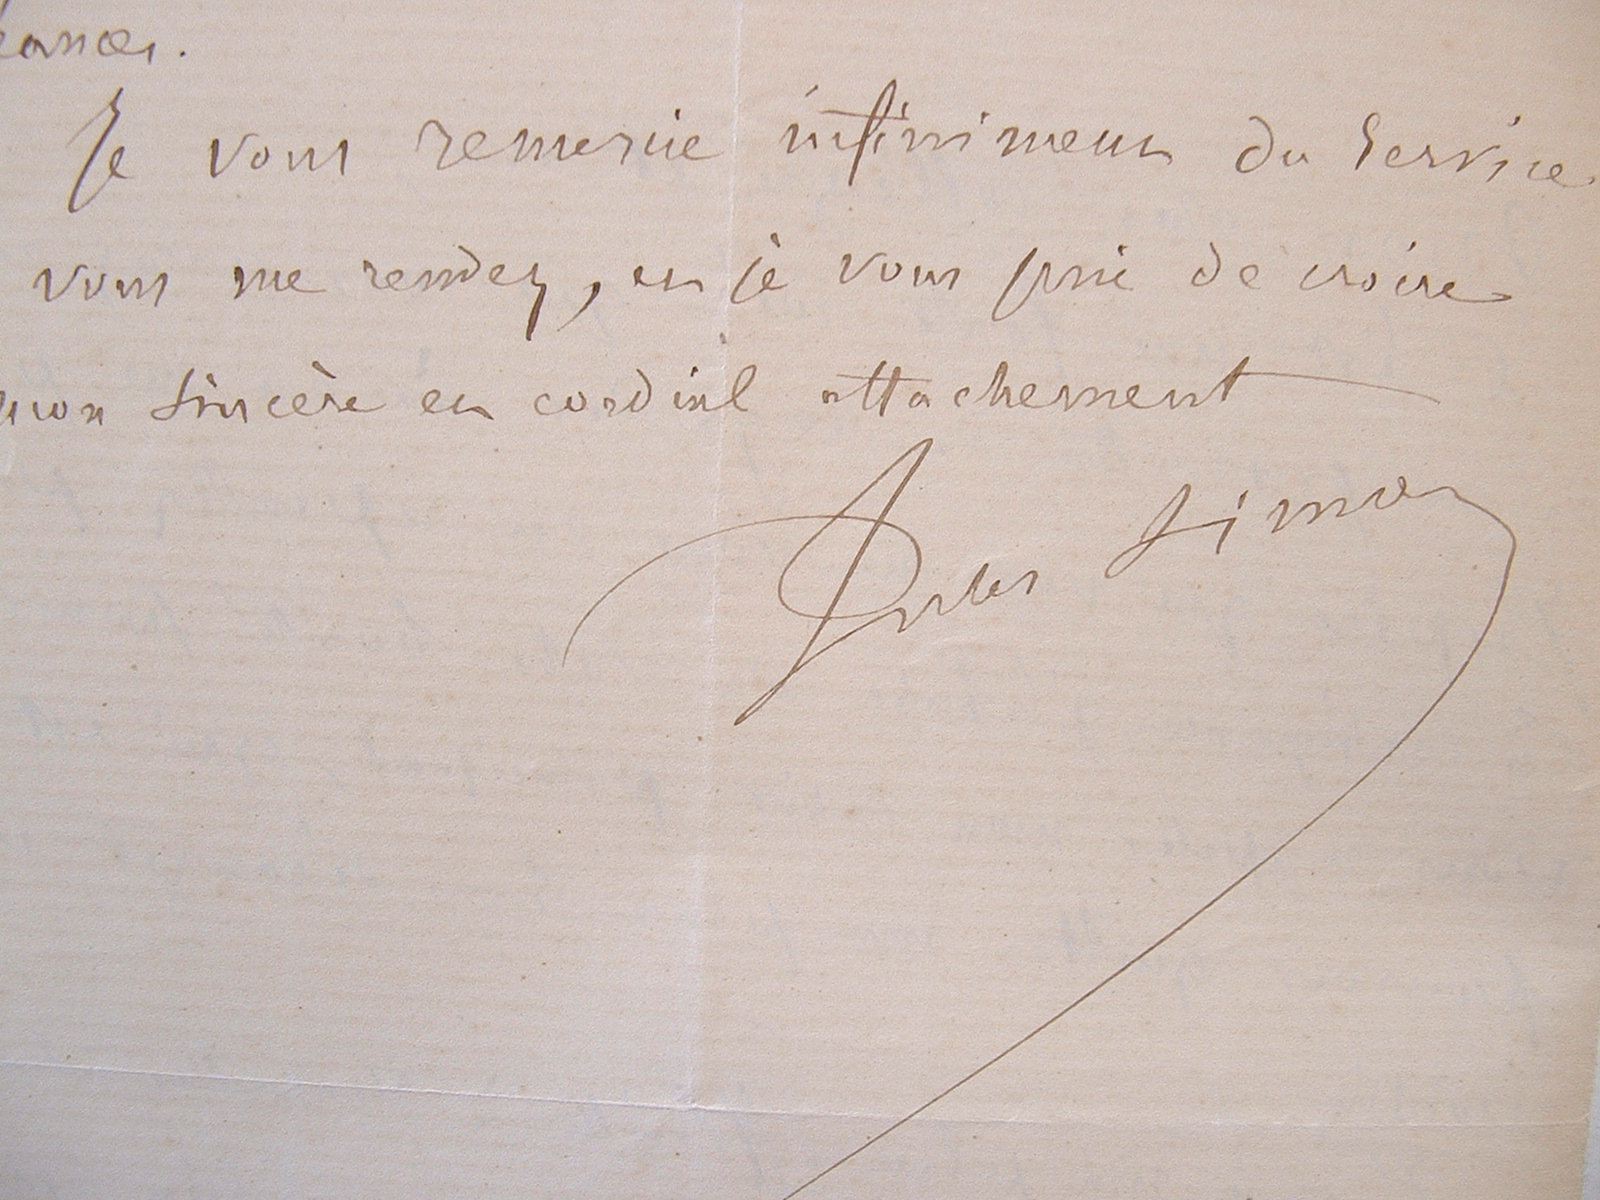 Je vous remercie infiniment du service
vous me rendez, et je vous prie de croire
mon sincère et cordial attachement
Jules Simon